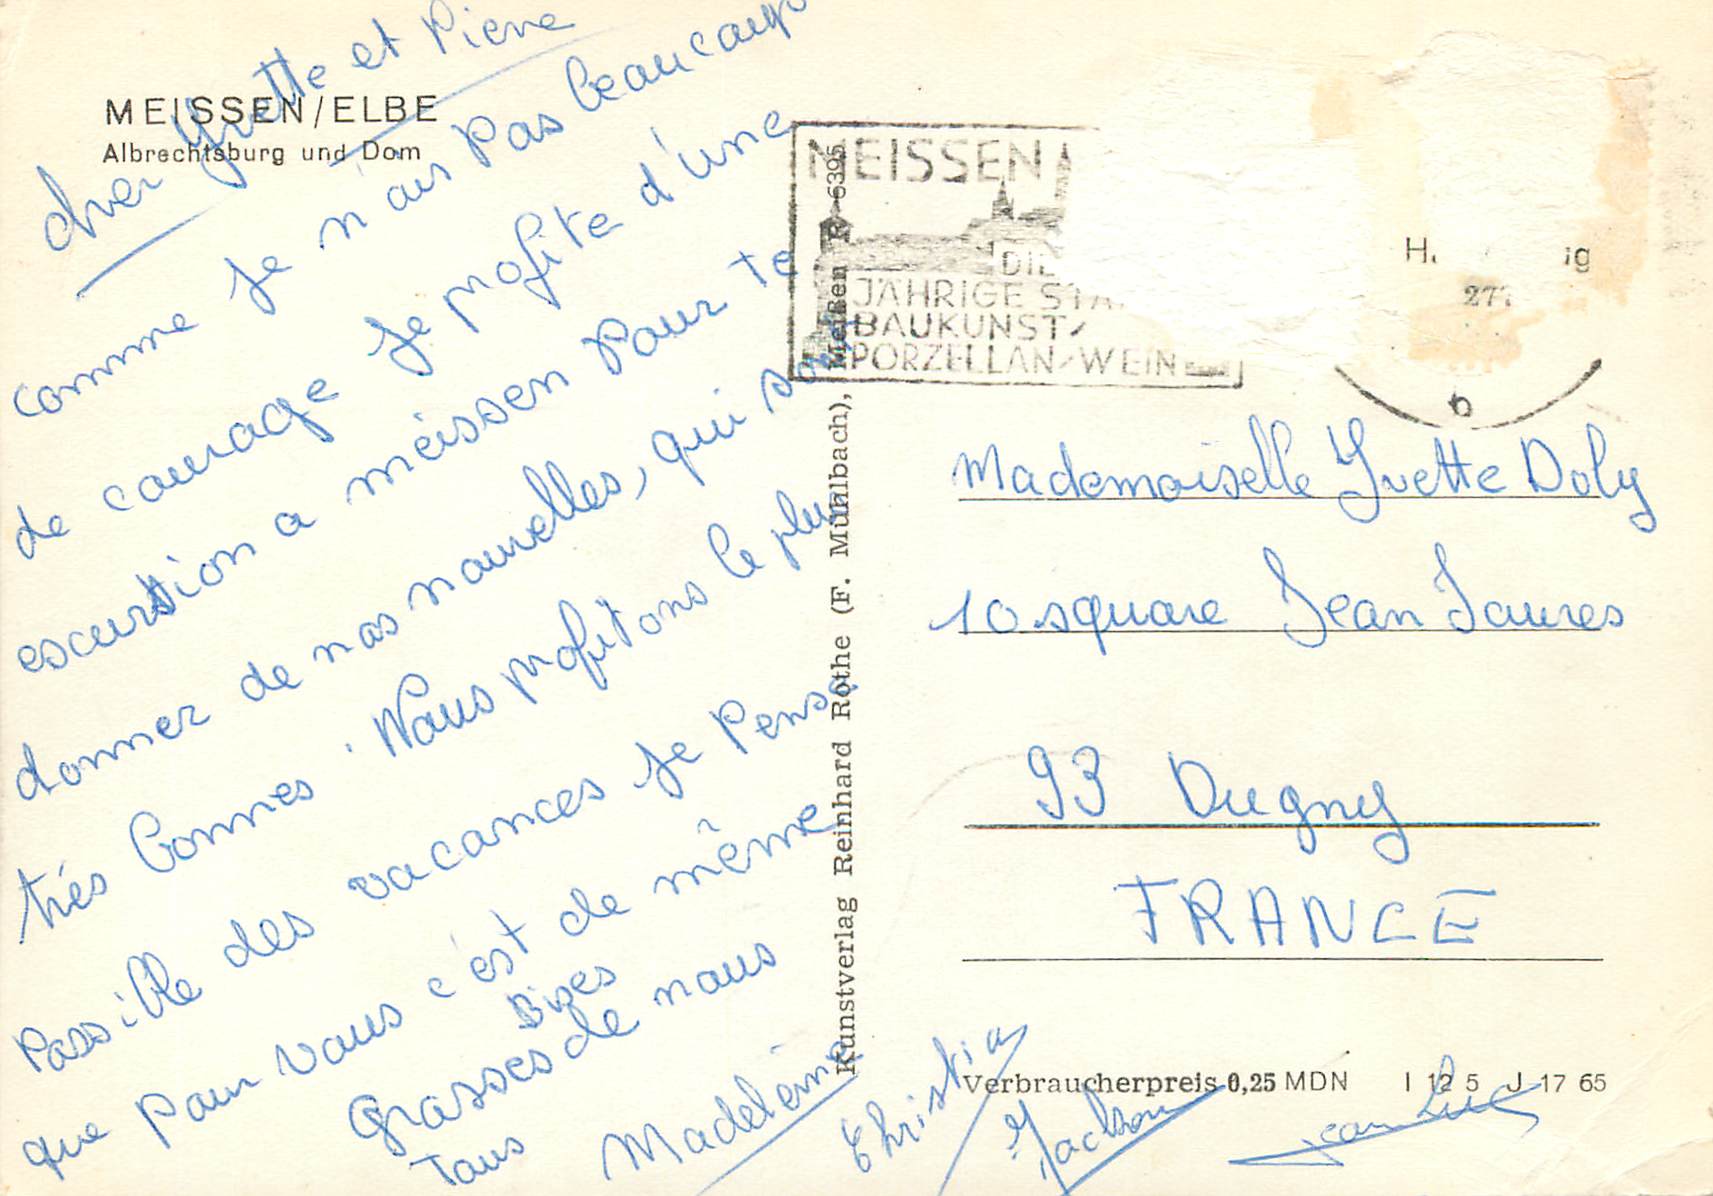 MEISSEN/ELBE
Albrechtsburg und Dom
cher Yvette et Pierre
comme je n'ais pas beaucoup
de courage je profite d'une
escurtion a meissen pour te
donner de nos nouvelles, qui sont
trés bonnes. Nous profitons le plus
possible des vacances je pense
que pour vous c'est de même
Grosses Bises de nous
Tous
Madeleine
Christian
Jackson
Jean Luc
Kunstverlag Reinhard Rothe (F. Mühlbach), Meißen R 6395
MEISSEN
DIE
JÄHRIGE STA
BAUKUNST/
PORZELLAN/WEIN
H ig
277
b
Mademoiselle Yvette Doly
10 square Jean Jaures
93 Dugny
FRANCE
Verbraucherpreis 0,25 MDN I 12 5 J 17 65